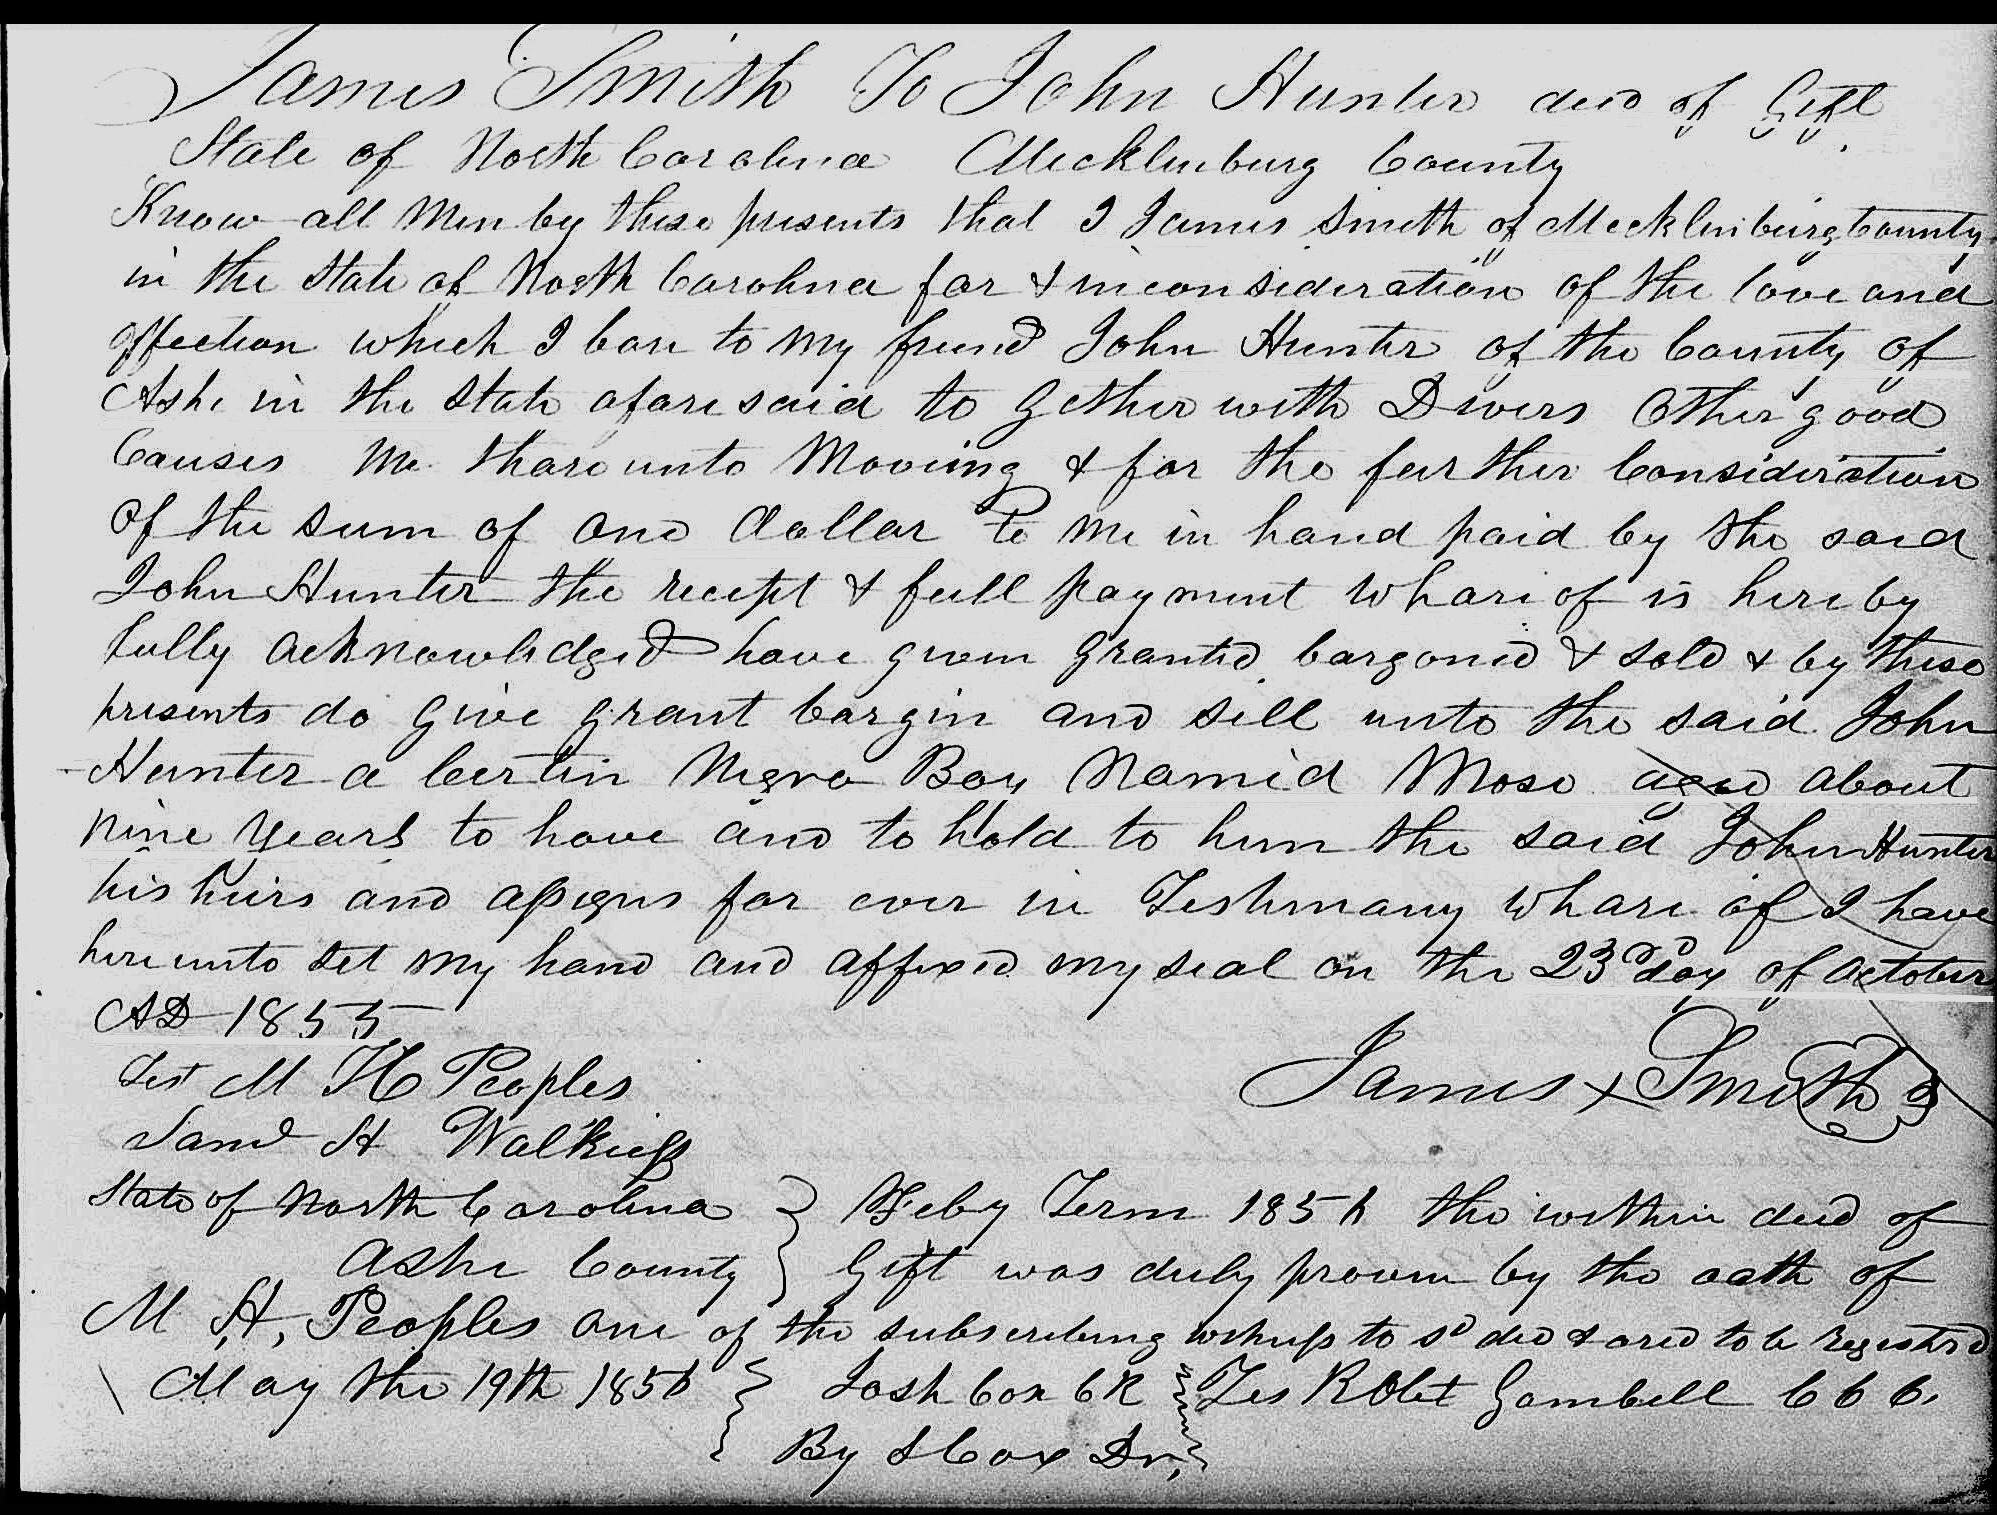 James Smith To John Hunter deed of Gift
State of North Carolina Mecklenburg County
Know all Men by these presents that I James Smith of Mecklenburg County
in the State of North Carolina for & in consideration of the love and
affection which I bare to my friend John Hunter of the County of
Ashe in the State afaresaid to gether with Divers Other good
Causes Me thareunto Moveing & for the further Consideration
Of the sum of One dollar to me in hand paid by the said
John Hunter the recept & full payment whareof is hereby
fully acknowledged have given granted bargoned & sold & by these
presents do give grant bargin and sell unto the said John
Hunter a Certin Negro Boy Named Mose aged about
nine years to have and to hold to him the said John Hunter
his heirs and assigns for ever in Testimony whareof I have
here unto set my hand and affixed my seal on the 23rd day of October
AD 1855
Test M H Peoples
Saml H Walkup
James x Smith
State of North Carolina } Feby Term 1856 the within deed of
Ashe County } Gift was duly proven by the oath of
M. H. Peoples one of the subscribing witness to sd ded & ored to be registred
May the 19th 1856 } Josh Cox CR } Tes Robt Gambill C C C.
By J Cox Dr,